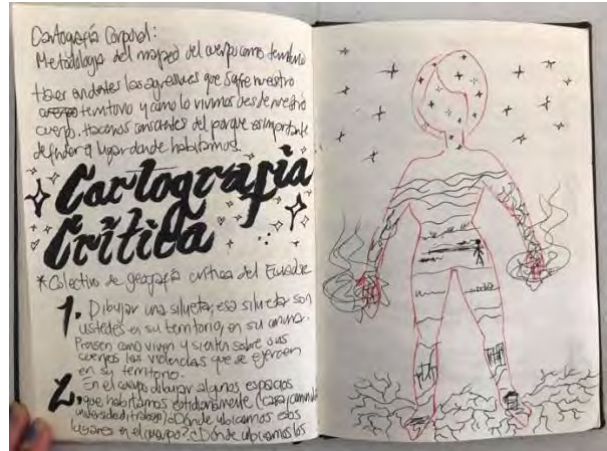 Cartografía Corporal:
Metodología del mapeo del cuerpo como territorio
Hacer evidentes las agresiones que sufre nuestro
territorio y como lo vivimos desde nuestro
cuerpo. Hacernos conscientes del porque es importante
defender el lugar donde habitamos.
Cartografía
Crítica
*Colectivo de geografía crítica del Ecuador
1. Dibujar una silueta, esa silueta son
ustedes en su territorio, en su
Piensen como viven y sienten sobre sus
cuerpos las violencias que se ejercen
en su territorio.
2. En el cuerpo dibujar algunos espacios
que habitamos cotidianamente (casa, camino,
universidad, trabajo) ¿Dónde ubicamos esos
lugares en el cuerpo? ¿Dónde ubicamos los